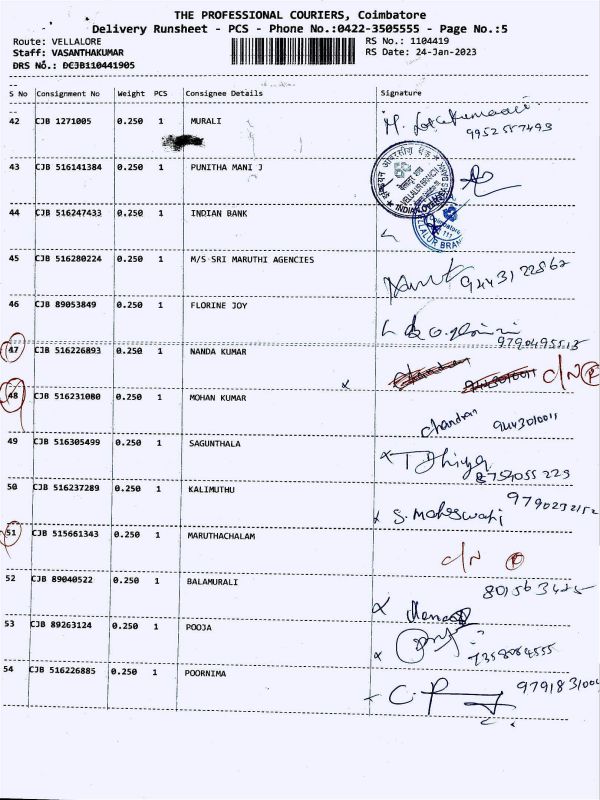 THE PROFESSIONAL COURIERS, Coimbatore
Delivery Runsheet - PCS - Phone No.:0422-3505555 - Page No.:5
Route: VELLALORE RS No.: 1104419
Staff: VASANTHAKUMAR RS Date: 24-Jan-2023
DRS No.: DCJB110441905
S No Consignment No Weight PCS Consignee Details Signature
42 CJB 1271005 0.250 1 MURALI
9952587493
43 CJB 516141384 0.250 1 PUNITHA MANI J
VELLALUR BRANCH
44 CJB 516247433 0.250 1 INDIAN BANK
45 CJB 516280224 0.250 1 M/S SRI MARUTHI AGENCIES
9443122862
46 CJB 89053849 0.250 1 FLORINE JOY
9790495515
47 CJB 516226893 0.250 1 NANDA KUMAR
C/N
48 CJB 516231080 0.250 1 MOHAN KUMAR
Chandran 9443010011
49 CJB 516305499 0.250 1 SAGUNTHALA
T Dhivya
8754055223
50 CJB 516237289 0.250 1 KALIMUTHU
9790232152
S. Maheswari
51 CJB 515661343 0.250 1 MARUTHACHALAM
C/N
52 CJB 89040522 0.250 1 BALAMURALI
53 CJB 89263124 0.250 1 POOJA
7358084555
54 CJB 516226885 0.250 1 POORNIMA